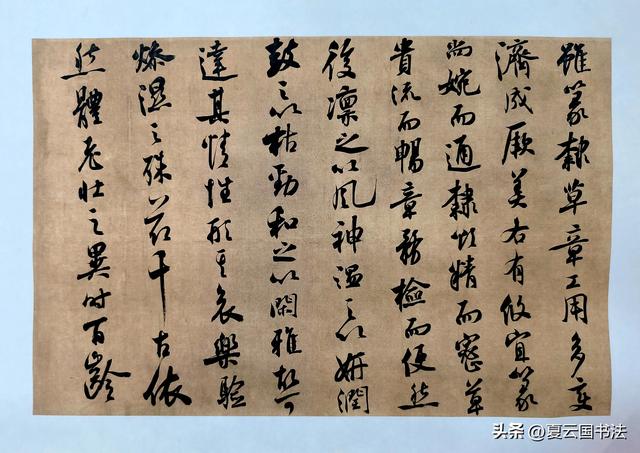 雖篆隸草章工用多變
濟成厥美各有攸宜篆
尚婉而通隸欲精而密草
貴流而暢章務檢而便然
後凛之以風神温之以妍潤
鼓之以枯勁和之以閑雅故可
達其情性形其哀樂驗
燥湿之殊節千古依
然體老壯之異时百齡
头条 @夏云国书法